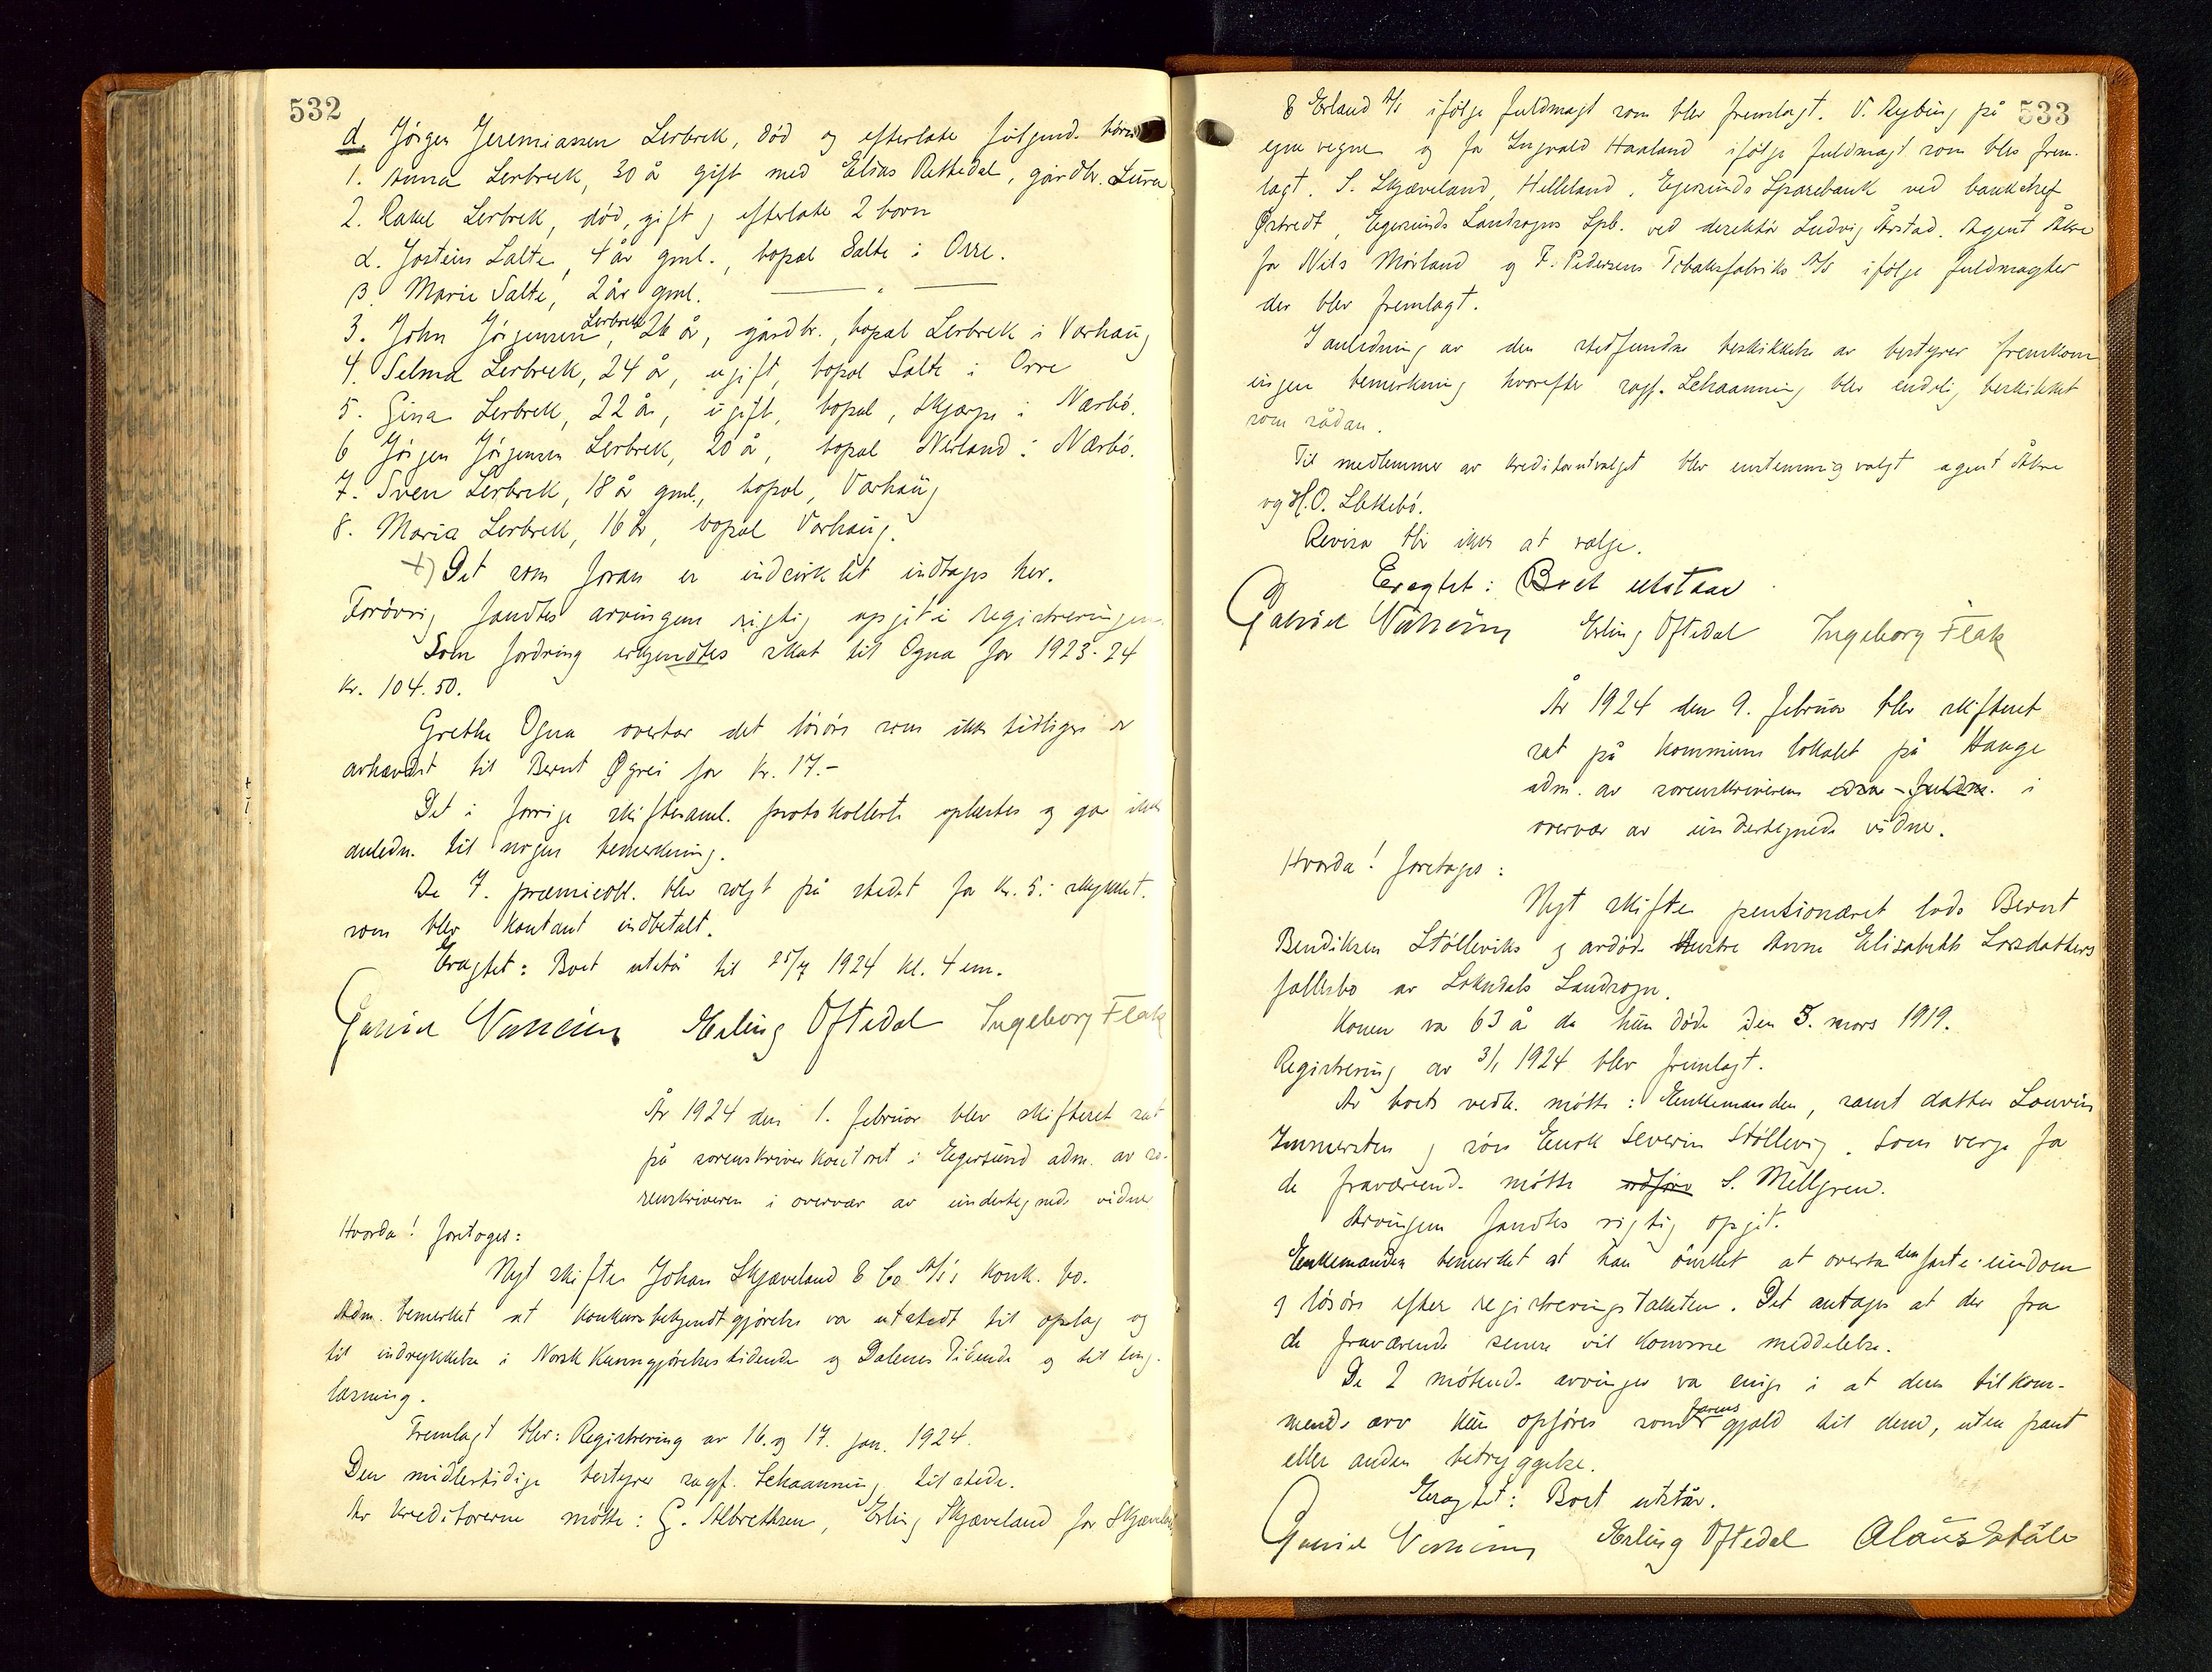 532
d. Jørgen Jeremiassen Lerbrek, død og efterlate følgend. børn
1. Anna Lerbrek, 30 år gift med Elias Rettedal, gårdbr. Lura
2. Rakel Lerbrek, død, gift, efterlate 2 born
α. Jostein Salte, 4 år gml., bopæl Salte i Orre.
β. Marie Salte, 2 år gml. — " —
3. John Jørgensen Lerbrek, 26 år, gårdbr., bopæl Lerbrek i Varhaug
4. Selma Lerbrek, 24 år, ugift, bopæl Salte i Orre
5. Gina Lerbrek, 22 år, ugift, bopæl, Skjærpe i Nærbø.
6 Jørgen Jørgensen Lerbrek, 20 år, bopæl Nerland i Nærbø.
7. Sven Lerbrek, 18 år gml., bopæl, Varhaug
8. Maria Lerbrek, 16 år, bopæl Varhaug.
+) Det som foran er indcirklet indtages her.
Forøvrig fandtes arvingene rigtig opgit i registreringen.
Som fordring erkjendtes skat til Ogna for 1923-24
kr. 104.50.
Grethe Ogna overtar det løsøre som ikke tidligere er
avhændet til Bernt Øgrei for kr. 17.-
Det i forrige skiftesaml. protokollerte oplæstes og gav ikke
anledn. til nogen bemerkning.
De 7. præmieobl. blev solgt på stedet for kr. 5.- stykket.
som blev kontant indbetalt.
Eragtet: Boet utstår til 25/7 1924 kl. 4 em.
Gabriel Vaheim Erling Oftedal Ingeborg Flak
År 1924 den 1. februar blev skifteret sat
på sorenskriverkontoret i Egersund adm. av so-
renskriveren i overvær av undertegnede vidner
Hvorda! foretoges:
Nyt skifte Johan Skjæveland & Co A/S's konk. bo.
Adm. bemerket at konkursbekjendtgjørelse var utstedt til opslag og
til indrykkelse i Norsk Kunngjørelsestidende og Dalenes Tidende og til ting-
læsning.
Fremlagt blev: Registrering av 16. og 17. jan. 1924.
Den midlertidige bestyrer sagf. Schaanning tilstede.
Av kreditorerne møtte: G. Albrethsen, Erling Skjæveland for Skjæveland
533
& Erland A/S ifølge fuldmagt som blev fremlagt. V. Nybing på
egne vegne og for Ingvald Haaland ifølge fuldmagt som blev frem-
lagt. S. Skjæveland, Helleland. Egersunds Sparebank ved bankchef
Østredt, Egersunds Landsogns Spb. ved direktør Ludvig Årstad. Agent Åkre
for Nils Mørland og F. Pedersens Tobaksfabriks A/S ifølge fuldmagter
der blev fremlagt.
I anledning av den stedfundne beskikkelse av bestyrer fremkom
ingen bemerkning hvorefter sagf. Schaanning blev endelig beskikket
som sådan.
Til medlemmer av kreditorutvalget blev enstemmig valgt agent Åkre
og H.O. Slettebø.
Revisor blir ikke at vælge.
Eragtet: Boet utstaar
Gabriel Vaheim Erling Oftedal Ingeborg Flak
År 1924 den 9. februar blev skifteret
sat på kommunelokalet på Hauge
adm. av sorenskriverens edsv. fuldm. i
overvær av undertegnede vidner.
Hvorda! foretages:
Nyt skifte pentionæret lods Bernt
Bendiksen Stølleviks og avdøde hustru Anne Elisabeth Larsdatters
fællesbo av Sokndals Landsogn.
Konen var 63 år da hun døde den 3. mars 1919.
Registrering av 3/1 1924 blev fremlagt.
Av boets vedk. møtte: Enkemanden, samt datter Lovvise
Immersten, søn Enok Severin Støllevig. Som verge for
de fraværend. møtte S. Mellgren.
Arvingene fandtes rigtig opgit.
Enkemanden bemerket at han ønsket at overta den faste eiendom
og løsøre efter registreringstaksten. Det antages at der fra
de fraværende senere vil komme meddelelse.
De 2 møtende arvinger var enige i at deres tilkom-
mende arv kun opføres som farens gjæld til dem, uten pant
eller anden betryggelse.
Eragtet: Boet utstår.
Gabriel Vaheim Erling Oftedal Claus Ståle